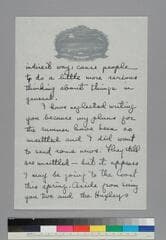 indirect way, cause people
to do a little more serious
thinking about things in
general.
I have neglected writing
you because my plans for
the summer have been so
unsettled and I did want
to send some news. They still
are unsettled — but it appears
I may be going to the coast
this spring. Aside from seeing
you two and the Huxleys